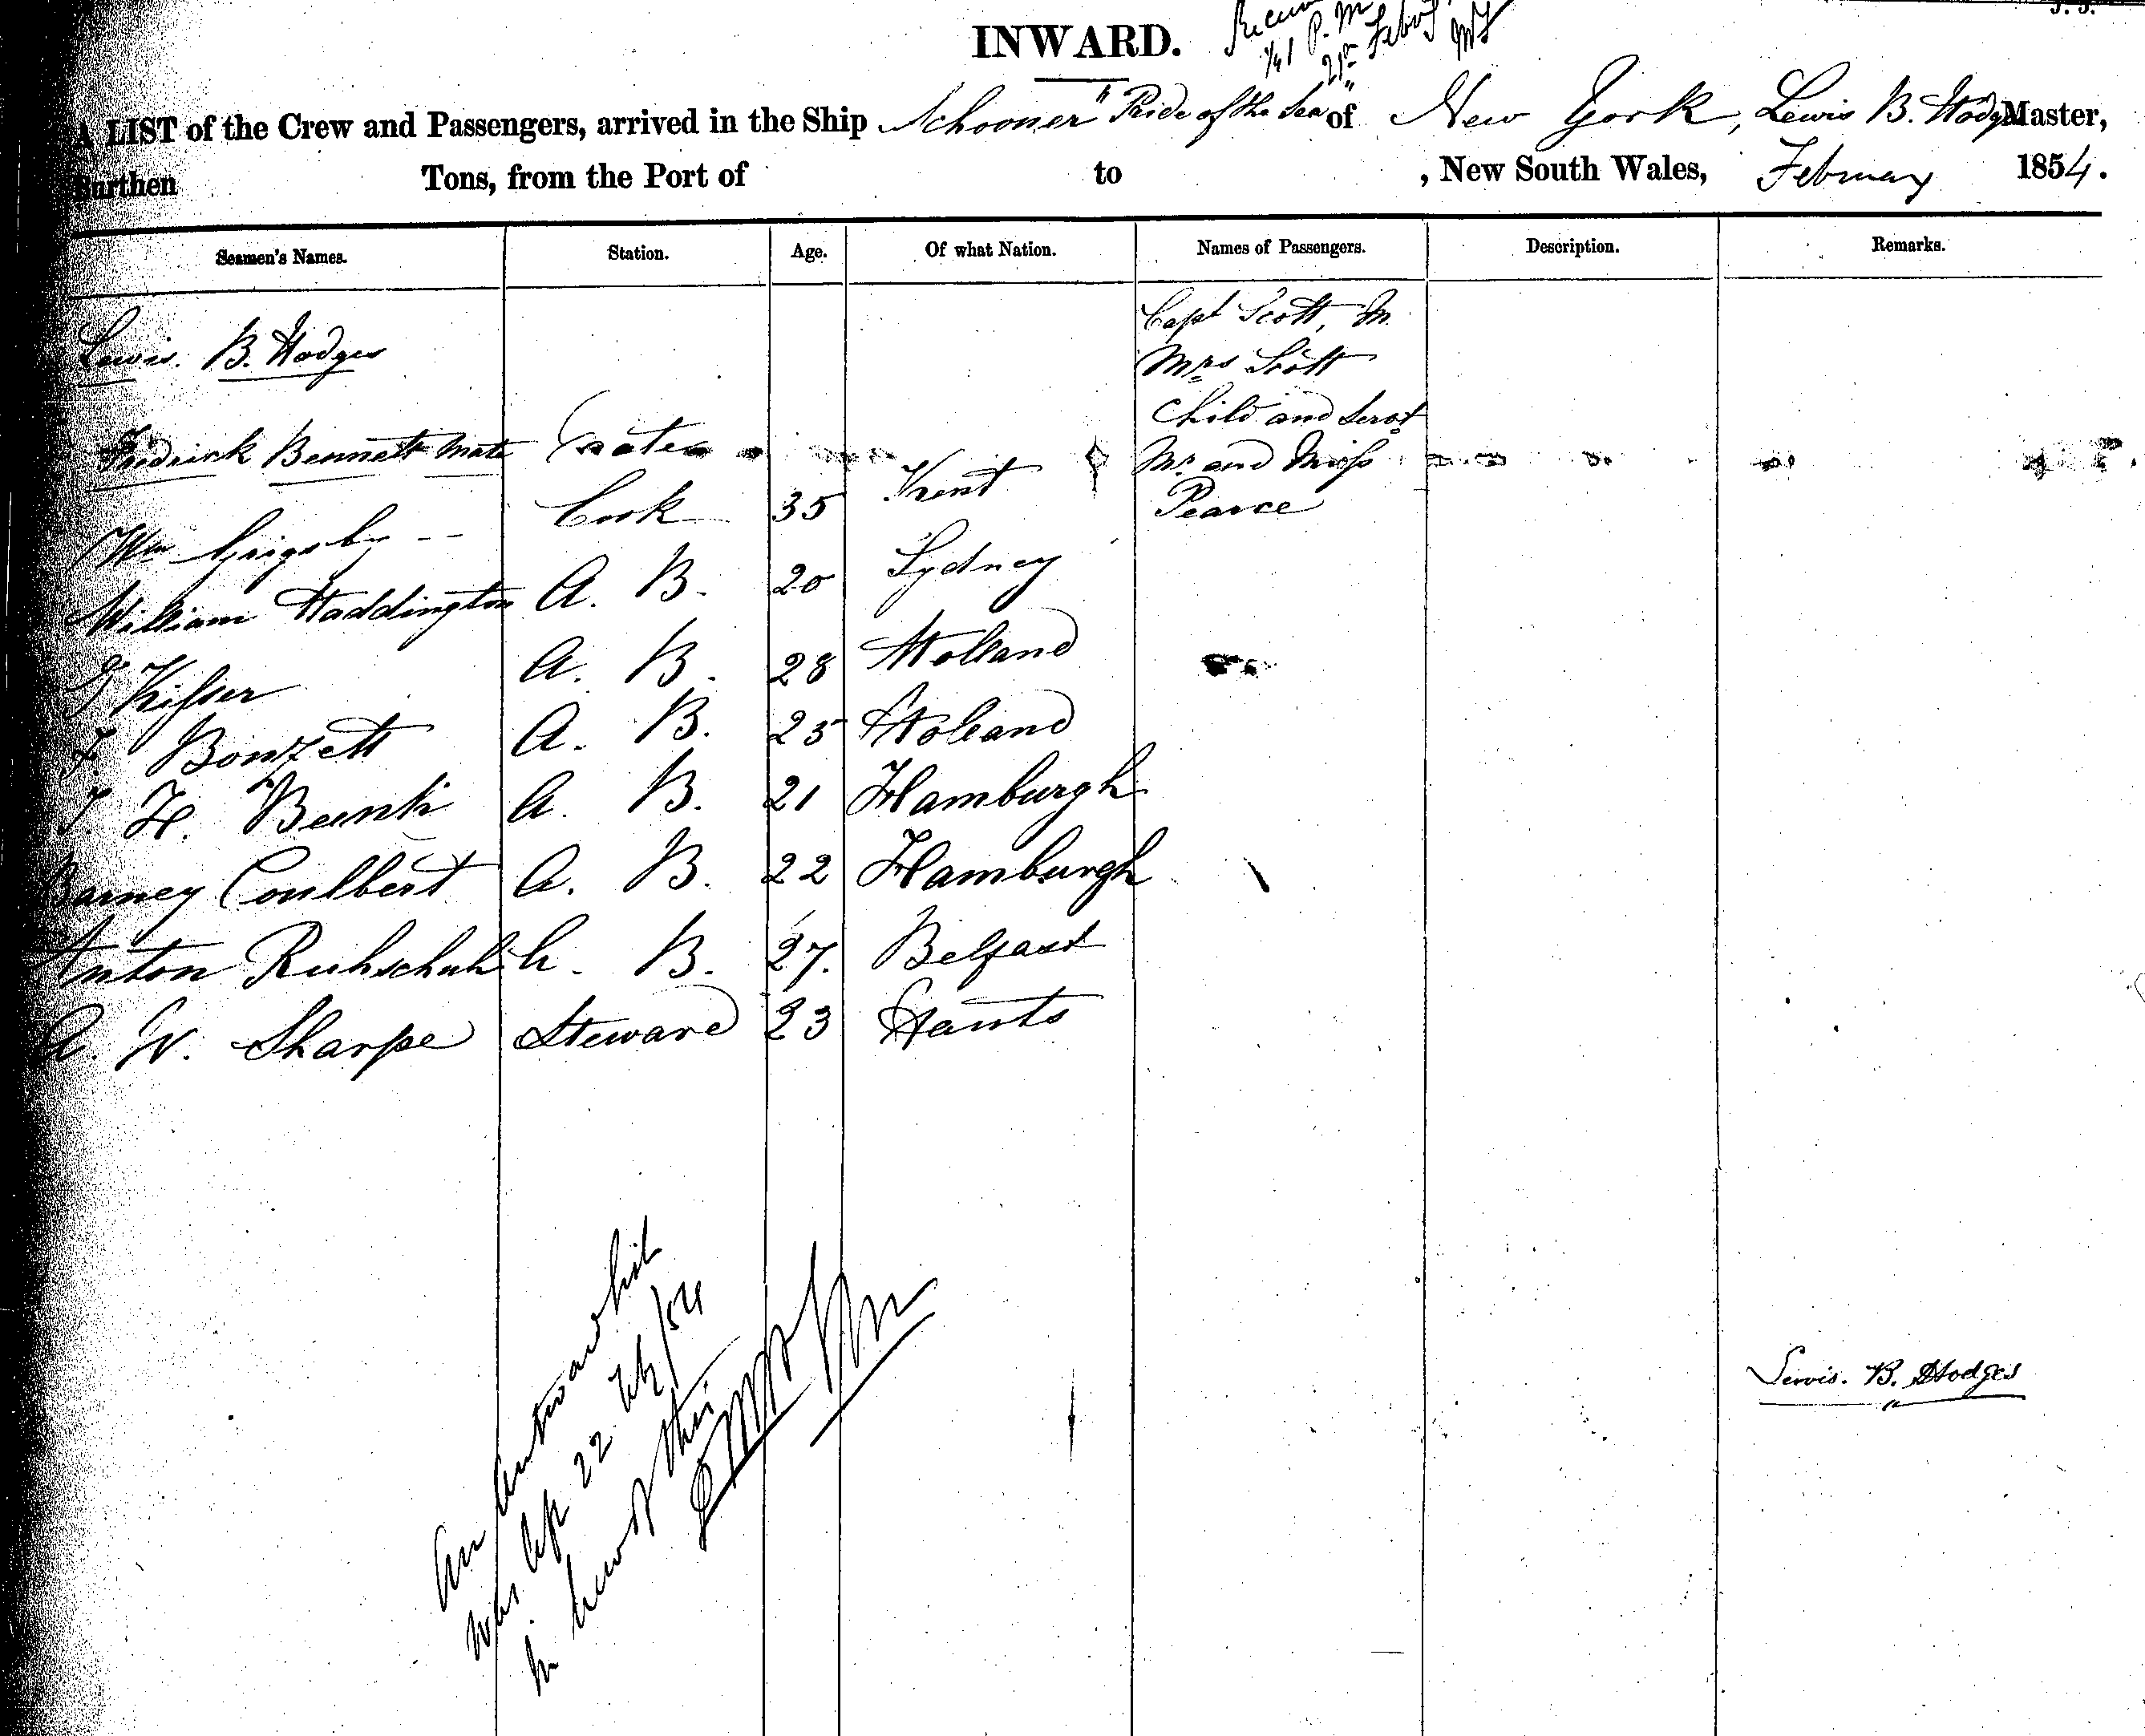 INWARD.
P.M
A LIST of the Crew and Passengers, arrived in the Ship Schooner "Pride of the Sea" of New York, Lewis B. Hodges Master,
Burthen Tons, from the Port of to , New South Wales, February 1854.
Seamen's Names. Station. Age. Of what Nation. Names of Passengers. Description. Remarks.
Capt Scott,
Lewis. B. Hodges Mrs Scott
Child and Servt
Fredrick Bennett Mate Mr and Miss
Cook 35 Kent Pearce
Wm Grigsby
A. B. 20 Sydney
William Haddington
A. B. 28 Holland
A. B. 25 Holland
Bonzett
A. B. 21 Hamburgh
H.
Barney Coulbert A. B. 22 Hamburgh
Anton Ruhschuh A. B. 27. Belfast
A. W. Sharpe Steward 23 Hants
Lewis. B. Hodges
An outward list
was 22 /54
in lieu of this